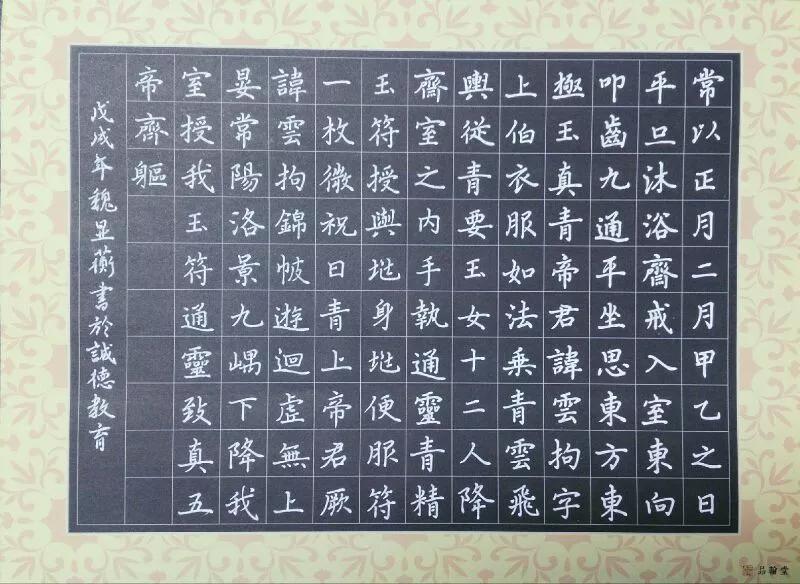 常以正月二月甲乙之日
平旦沐浴齋戒入室東向
叩齒九通平坐思東方東
極玉真青帝君諱雲拘字
上伯衣服如法乗青雲飛
輿從青要玉女十二人降
齋室之内手執通靈青精
玉符授與地身地便服符
一枚微祝曰青上帝君厥
諱雲拘錦帔遊迴虛無上
晏常陽洛景九嵎下降我
室授我玉符通靈致真五
帝齊軀
戊戌年魏显蘅書於誠德教育
品翰堂